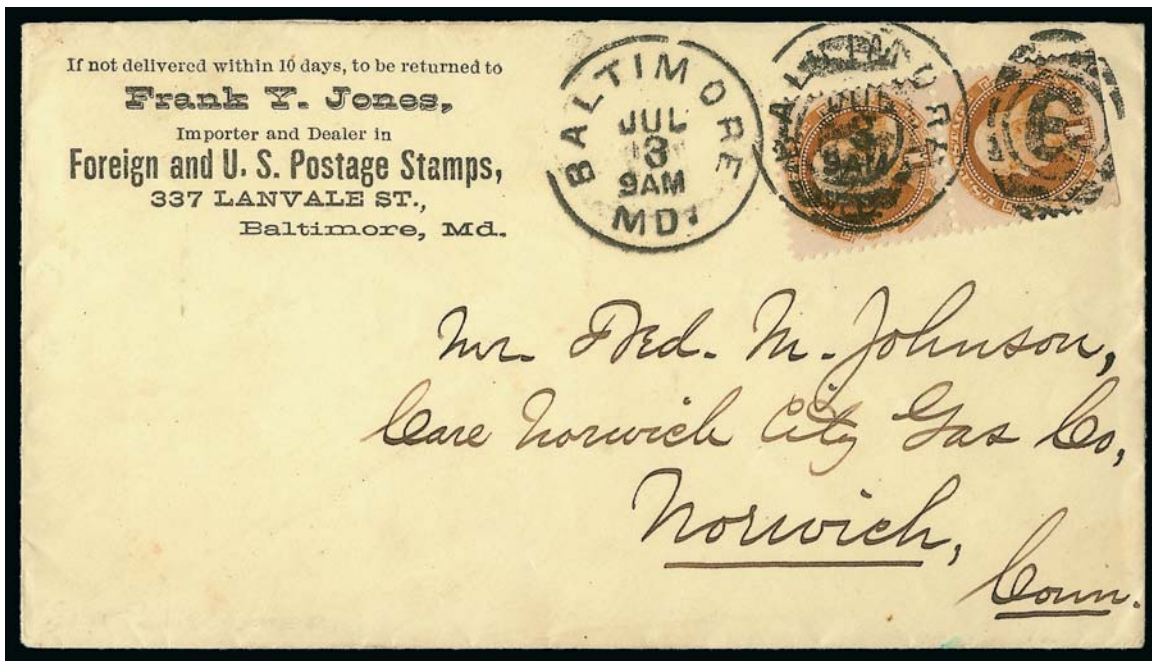 If not delivered within 10 days, to be returned to
Frank Y. Jones,
Importer and Dealer in
Foreign and U. S. Postage Stamps,
337 LANVALE ST.,
Baltimore, Md.
BALTIMORE
JUL
3
9AM
MD.
BALTIMORE
9AM
Mr. Fred. M. Johnson,
Care Norwich City Gas Co,
Norwich,
Conn.